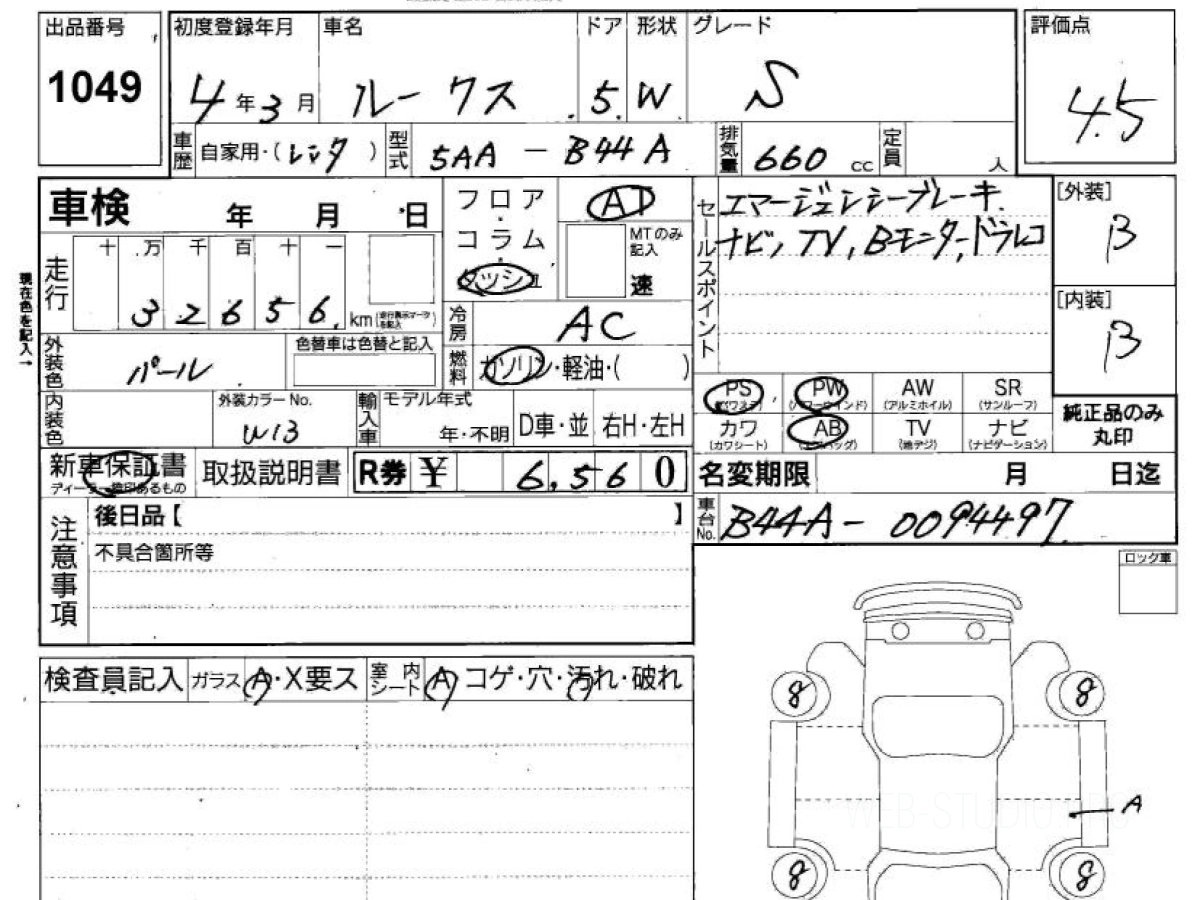 出品番号
1049
初度登録年月 車名 ドア 形状 グレード
4年3月 ルークス 5 W S
評価点
4.5
車歴 自家用・(レンタ) 型式 5AA - B44A 排気量 660 cc 定員 人
車検 年 月 日
フロア・コラム・ダッシュ
AT
MTのみ記入
速
セールスポイント エマージェンシーブレーキ
ナビ, TV, Bモニター, ドラレコ
[外装]
B
[内装]
B
現在色を記入→
走行 十 万 千 百 十 一
3 2 6 5 6 km (走行表示マークを記入)
冷房 AC
外装色 パール 色替車は色替と記入
燃料 ガソリン・軽油・( )
内装色 外装カラーNo. W13
輸入車 モデル年式 年・不明 D車・並 右H・左H
PS (パワステ) PW (パワーウインド) AW (アルミホイル) SR (サンルーフ)
カワ (カワシート) AB (エアバッグ) TV (地デジ) ナビ (ナビゲーション)
純正品のみ丸印
新車保証書 ディーラー捺印あるもの 取扱説明書 R券 ¥ 6,560
名変期限 月 日迄
車台No. B44A - 0094497
注意事項
後日品【 】
不具合箇所等
ロック車
検査員記入 ガラス A・X要ス 室内シート A コゲ・穴・汚れ・破れ
8 8
A
WEB-STUDIO
8 8